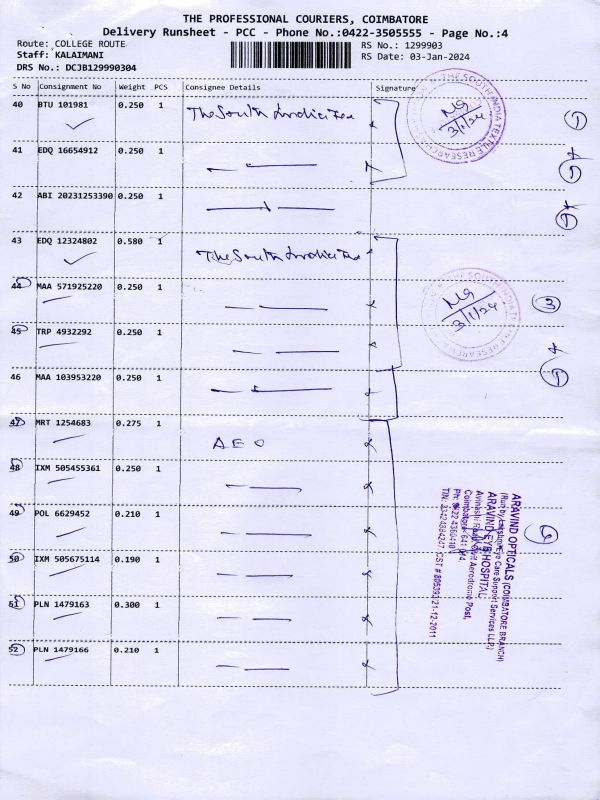 THE PROFESSIONAL COURIERS, COIMBATORE
Delivery Runsheet - PCC - Phone No.:0422-3505555 - Page No.:4
Route: COLLEGE ROUTE RS No.: 1299903
Staff: KALAIMANI RS Date: 03-Jan-2024
DRS No.: DCJB129990304
S No Consignment No Weight PCS Consignee Details Signature
40 BTU 101981 0.250 1 The South India Tex
41 EDQ 16654912 0.250 1
42 ABI 20231253390 0.250 1
43 EDQ 12324802 0.580 1 The South India Tex
44 MAA 571925220 0.250 1
45 TRP 4932292 0.250 1
46 MAA 103953220 0.250 1
47 MRT 1254683 0.275 1 AEO
48 IXM 505455361 0.250 1
49 POL 6629452 0.210 1
50 IXM 505675114 0.190 1
51 PLN 1479163 0.300 1
52 PLN 1479166 0.210 1
THE SOUTH INDIA TEXTILE RESEARCH
3/1/24
1
1
1
THE SOUTH INDIA TEXTILE RESEARCH
3/1/24
3
1
6
ARAVIND OPTICALS (COIMBATORE BRANCH)
(Run by Lakshmi Eye Care Support Services LLP)
ARAVIND EYE HOSPITAL
Avinashi Road, Civil Aerodrome Post,
Coimbatore - 641 014.
Ph: 0422 4360418